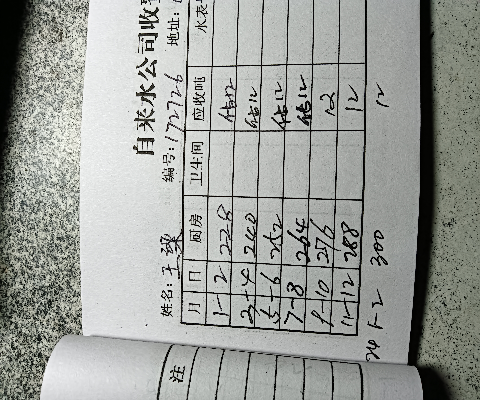 自来水公司收
编号:172726 地址:
姓名:王
月 日 厨房 卫生间 应收吨 水表
1-2 228 12
3-4 240 12
5-6 252 12
7-8 264 12
9-10 276 12
11-12 288 12
24 1-2 300 12
注